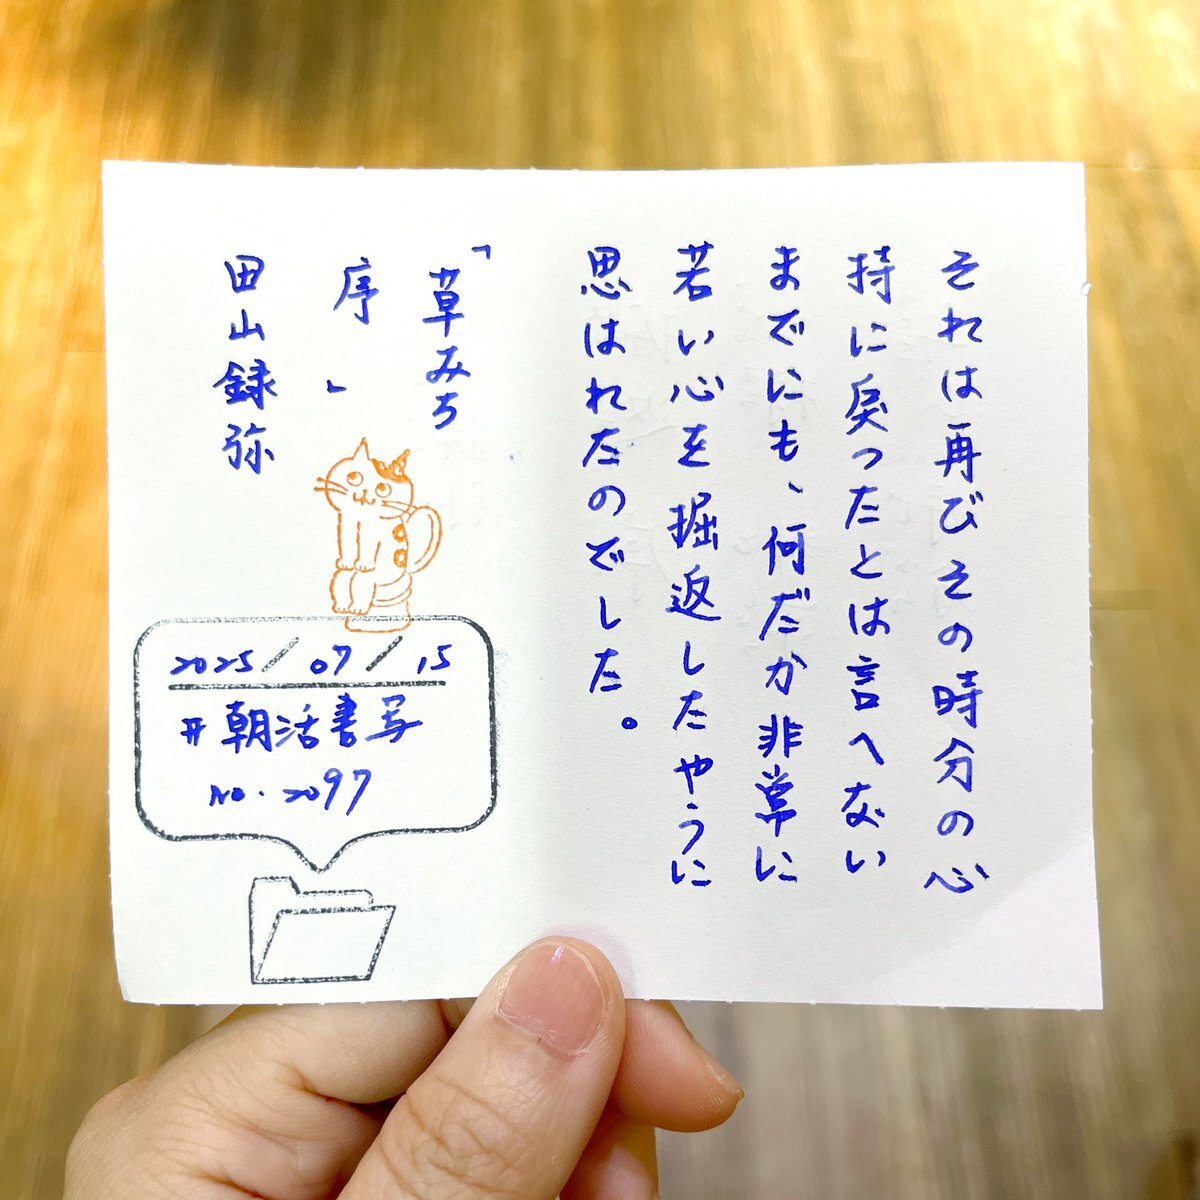 それは再びその時分の心
持に戻ったとは言へない
までにも、何だか非常に
若い心を掘返したやうに
思はれたのでした。
「草みち
序」
田山録弥
2025/07/15
#朝活書写
No.2097